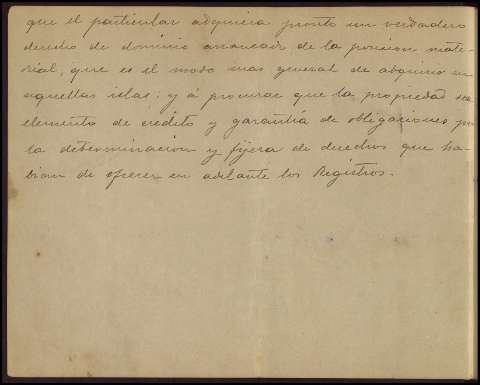 que el particular adquiera pronto un verdadero
derecho de dominio arrancado de la posesion mate-
rial, que es el modo mas general de adquirir en
aquellas islas; y á procurar que la propiedad sea
elemento de credito y garantía de obligaciones por
la determinacion y fijeza de derechos que ha-
bian de ofrecer en adelante los Registros.